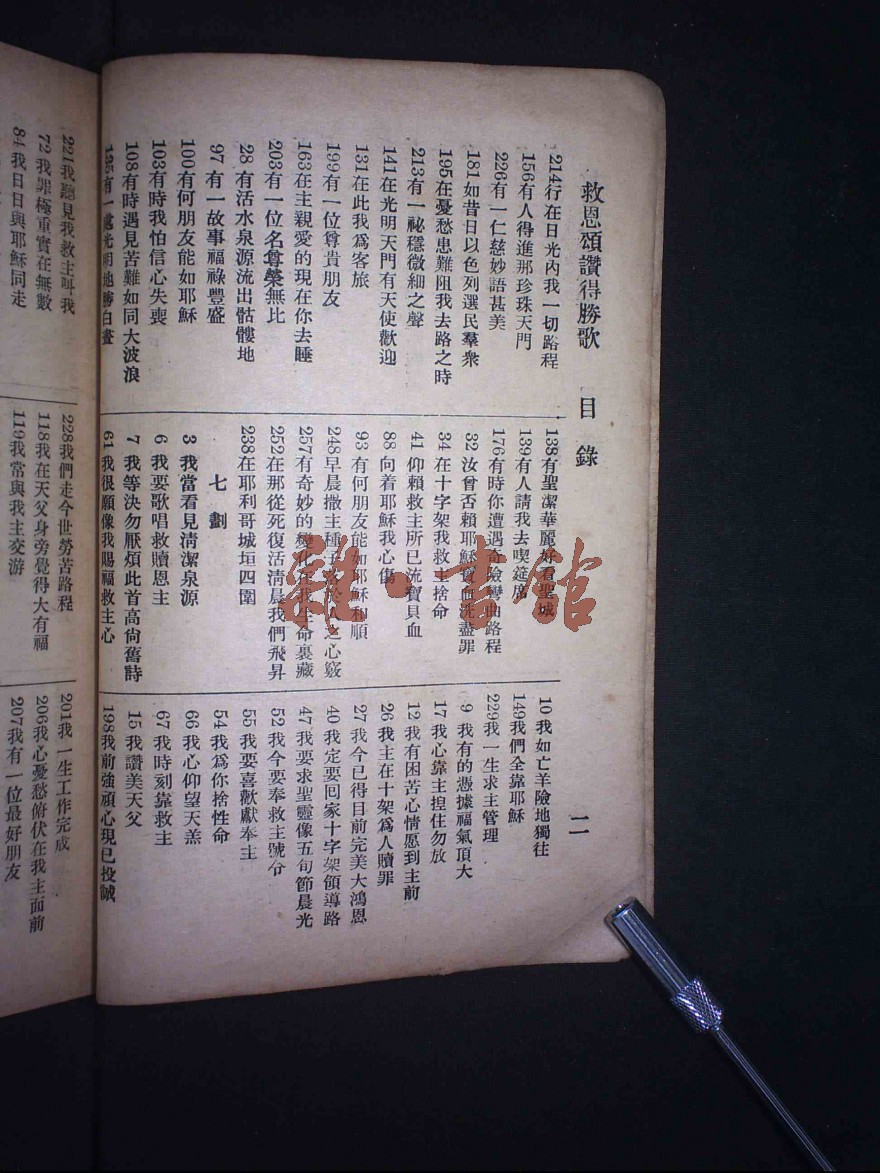 救恩頌讚得勝歌 目錄 二
214行在日光內我一切路程
156有人得進那珍珠天門
226有一仁慈妙語甚美
181如昔日以色列選民羣衆
195在憂愁患難阻我去路之時
213有一祕穩微細之聲
141在光明天門有天使歡迎
131在此我爲客旅
199有一位尊貴朋友
163在主親愛的現在你去睡
203有一位名尊榮無比
28有活水泉源流出骷髏地
97有一故事福祿豐盛
100有何朋友能如耶穌
103有時我怕信心失喪
108有時遇見苦難如同大波浪
135有一處光明地勝白晝
138有聖潔華麗好看聖城
139有人請我去喫筵席
176有時你遭遇奇險彎曲路程
32汝曾否賴耶穌寶血洗盡罪
34在十字架我救主捨命
41仰賴救主所已流寶貝血
88向着耶穌我心傷
93有何朋友能如耶穌和順
248早晨撒主種子落於人之心竅
257有奇妙的變化在我生命裏藏
252在那從死復活清晨我們飛昇
238在耶利哥城垣四圍
七劃
3我當看見清潔泉源
6我要歌唱救贖恩主
7我等決勿厭煩此首高尙舊詩
61我很願像我賜福救主心
10我如亡羊險地獨往
149我們全靠耶穌
229我一生求主管理
9我有的憑據福氣頂大
17我心靠主揑住勿放
12我有困苦心情愿到主前
26我主在十架爲人贖罪
27我今已得目前完美大鴻恩
40我定要回家十字架領導路
47我要求聖靈像五旬節晨光
52我今要奉救主號令
55我要喜歡獻奉主
54我爲你捨性命
66我心仰望天羔
67我時刻靠救主
15我讚美天父
198我前強頑心現已投誠
221我聽見我救主叫我
72我罪極重實在無數
84我日日與耶穌同走
228我們走今世勞苦路程
118我在天父身旁覺得大有福
119我當與我主交游
201我一生工作完成
206我心憂愁俯伏在我主面前
207我有一位最好朋友
雜·書館